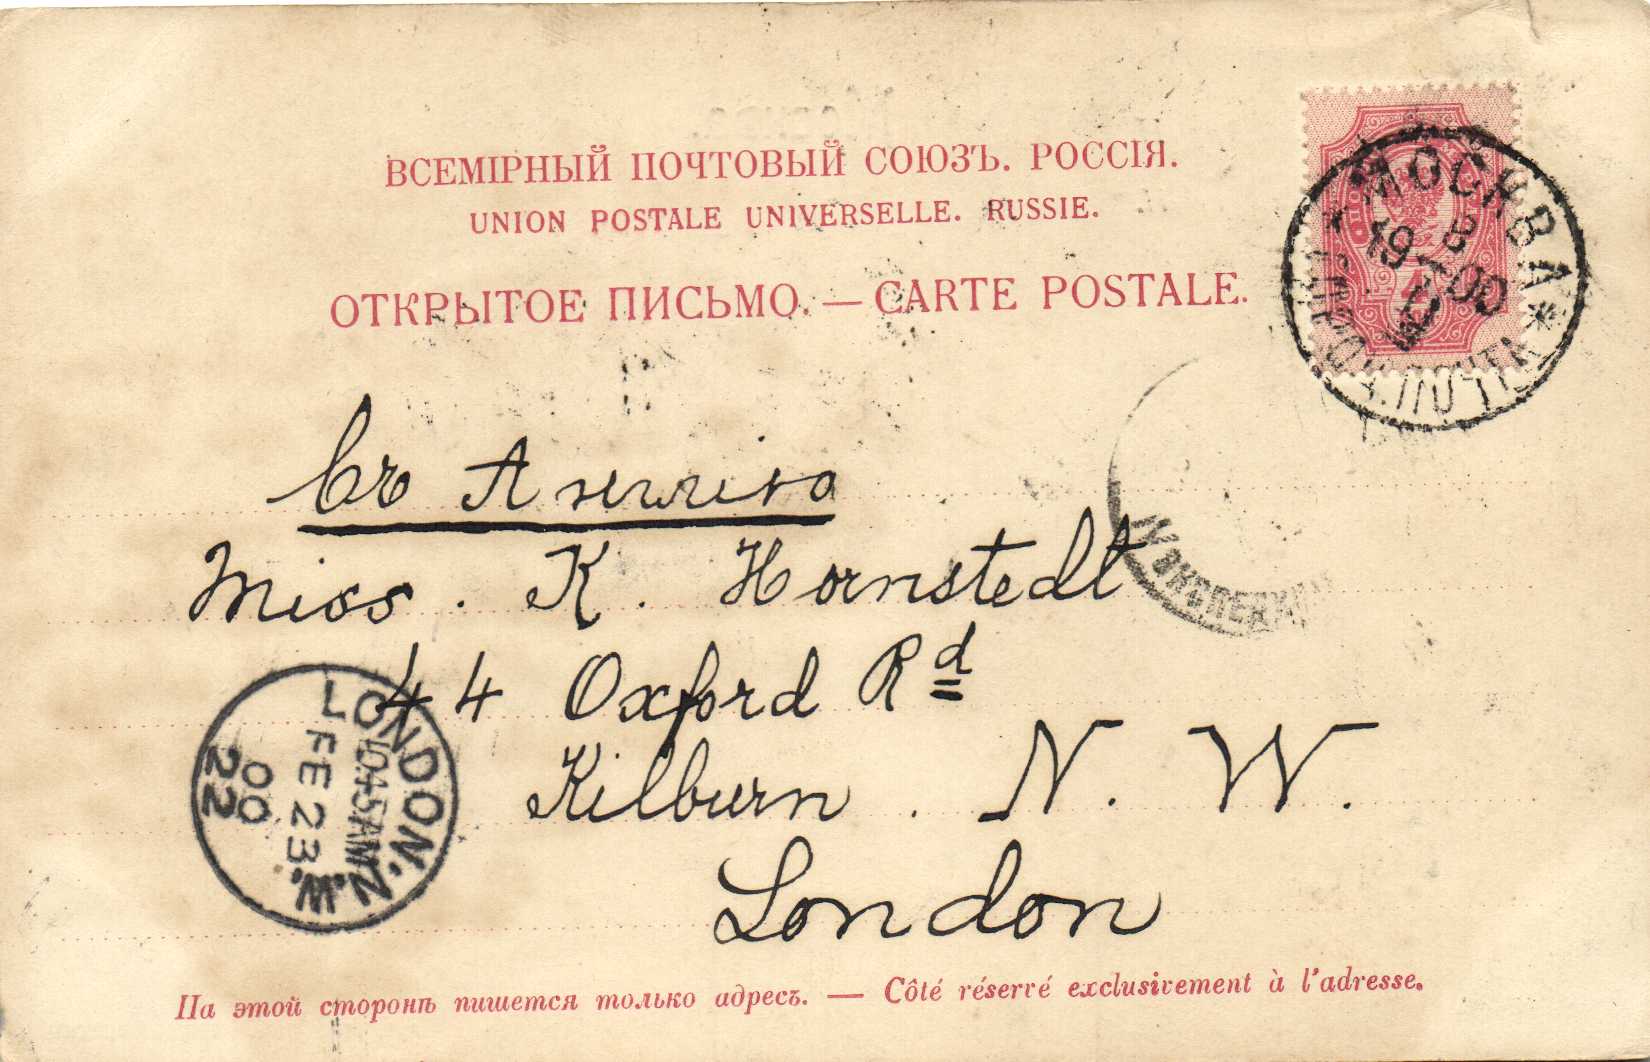 ВСЕМІРНЫЙ ПОЧТОВЫЙ СОЮЗЪ. РОССІЯ.
UNION POSTALE UNIVERSELLE. RUSSIE.
ОТКРЫТОЕ ПИСЬМО. — CARTE POSTALE.
МОСКВА
8
19 00
4
Въ Англию
Miss. K. Hornstedt
44 Oxford Rd
Kilburn. N. W.
London
LONDON. N.W.
10.45AM
FE 23
00
22
На этой сторонѣ пишется только адресъ. — Côté réservé exclusivement à l'adresse.